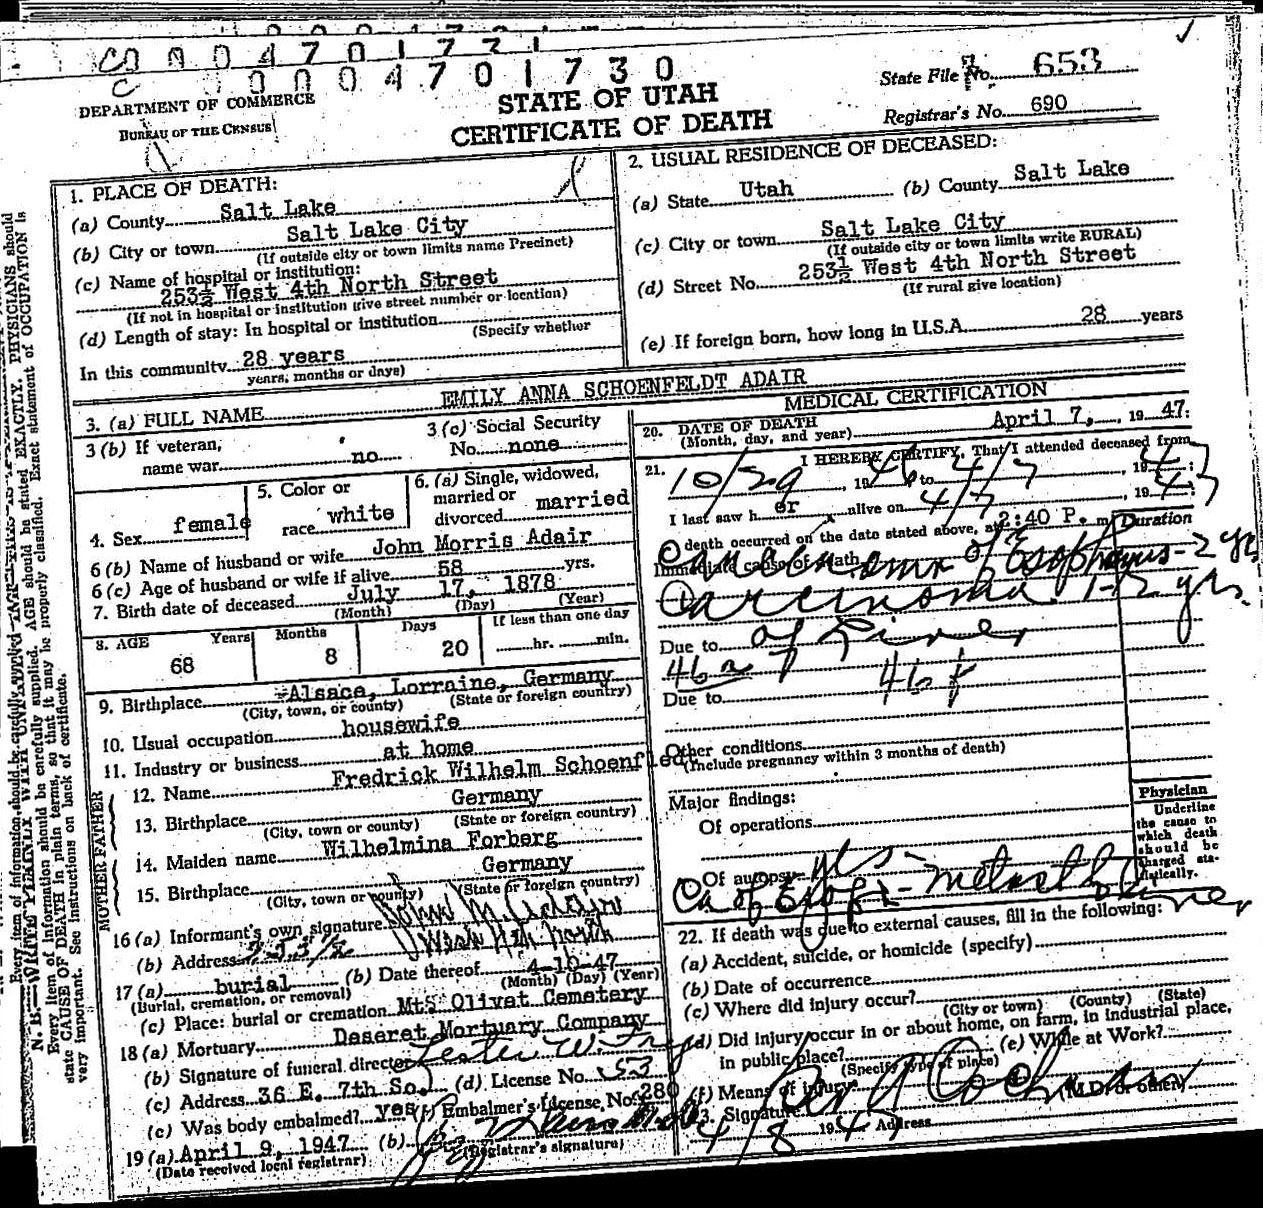 0004701731
0004701730
DEPARTMENT OF COMMERCE
BUREAU OF THE CENSUS
STATE OF UTAH
CERTIFICATE OF DEATH
State File No. 653
Registrar's No. 690
1. PLACE OF DEATH:
(a) County Salt Lake
(b) City or town Salt Lake City
(If outside city or town limits name Precinct)
(c) Name of hospital or institution:
253½ West 4th North Street
(If not in hospital or institution give street number or location)
(d) Length of stay: In hospital or institution
(Specify whether
In this community 28 years
years, months or days)
2. USUAL RESIDENCE OF DECEASED:
(a) State Utah (b) County Salt Lake
(c) City or town Salt Lake City
(If outside city or town limits write RURAL)
(d) Street No. 253½ West 4th North Street
(If rural give location)
(e) If foreign born, how long in U.S.A. 28 years
3. (a) FULL NAME EMILY ANNA SCHOENFELDT ADAIR
3 (b) If veteran,
name war no
3 (c) Social Security
No. none
4. Sex female
5. Color or
race white
6. (a) Single, widowed,
married or
divorced married
6 (b) Name of husband or wife John Morris Adair
6 (c) Age of husband or wife if alive 58 yrs.
7. Birth date of deceased July 17, 1878
(Month) (Day) (Year)
8. AGE Years Months Days If less than one day
68 8 20 hr. min.
9. Birthplace Alsace, Lorraine, Germany
(City, town, or county) (State or foreign country)
10. Usual occupation housewife
11. Industry or business at home
FATHER
12. Name Fredrick Wilhelm Schoenfledt
13. Birthplace Germany
(City, town or county) (State or foreign country)
MOTHER
14. Maiden name Wilhelmina Forberg
15. Birthplace Germany
(City, town or county) (State or foreign country)
16 (a) Informant's own signature John M. Adair
(b) Address 253½ West 4th North
17 (a) burial (b) Date thereof 4-10-47
(Burial, cremation, or removal) (Month) (Day) (Year)
(c) Place: burial or cremation Mt. Olivet Cemetery
18 (a) Mortuary Deseret Mortuary Company
(b) Signature of funeral director Lester W.
(c) Address 36 E. 7th So. (d) License No. 53
(e) Was body embalmed? yes (f) Embalmer's License No. 280
19 (a) April 9, 1947 (b)
(Date received local registrar) (Registrar's signature)
MEDICAL CERTIFICATION
20. DATE OF DEATH
(Month, day, and year) April 7, 1947:
21. I HEREBY CERTIFY, That I attended deceased from
10/29, 1946 to 4/7, 1947:
I last saw her alive on 4/7, 1947
death occurred on the date stated above, at 2:40 P. m. Duration
Immediate cause of death
Carcinoma of Esophagus - 2 yrs
Carcinoma 1-2 yrs.
Due to of Liver
46a 46f
Due to
Other conditions
(Include pregnancy within 3 months of death)
Major findings:
Of operations
Of autopsy yes -
Ca of Esoph - metast to Liver
Physician
Underline
the cause to
which death
should be
charged sta-
tistically.
22. If death was due to external causes, fill in the following:
(a) Accident, suicide, or homicide (specify)
(b) Date of occurrence
(c) Where did injury occur?
(City or town) (County) (State)
(d) Did injury occur in or about home, on farm, in industrial place,
in public place? (e) While at Work?
(Specify type of place)
(f) Means of injury
23. Signature M.D. or other
4/8 1947 Address
N. B.—WRITE PLAINLY WITH UNFADING
Every item of information should be carefully supplied. AGE should be stated EXACTLY. PHYSICIANS should
state CAUSE OF DEATH in plain terms, so that it may be properly classified. Exact statement of OCCUPATION is
very important. See instructions on back of certificate.